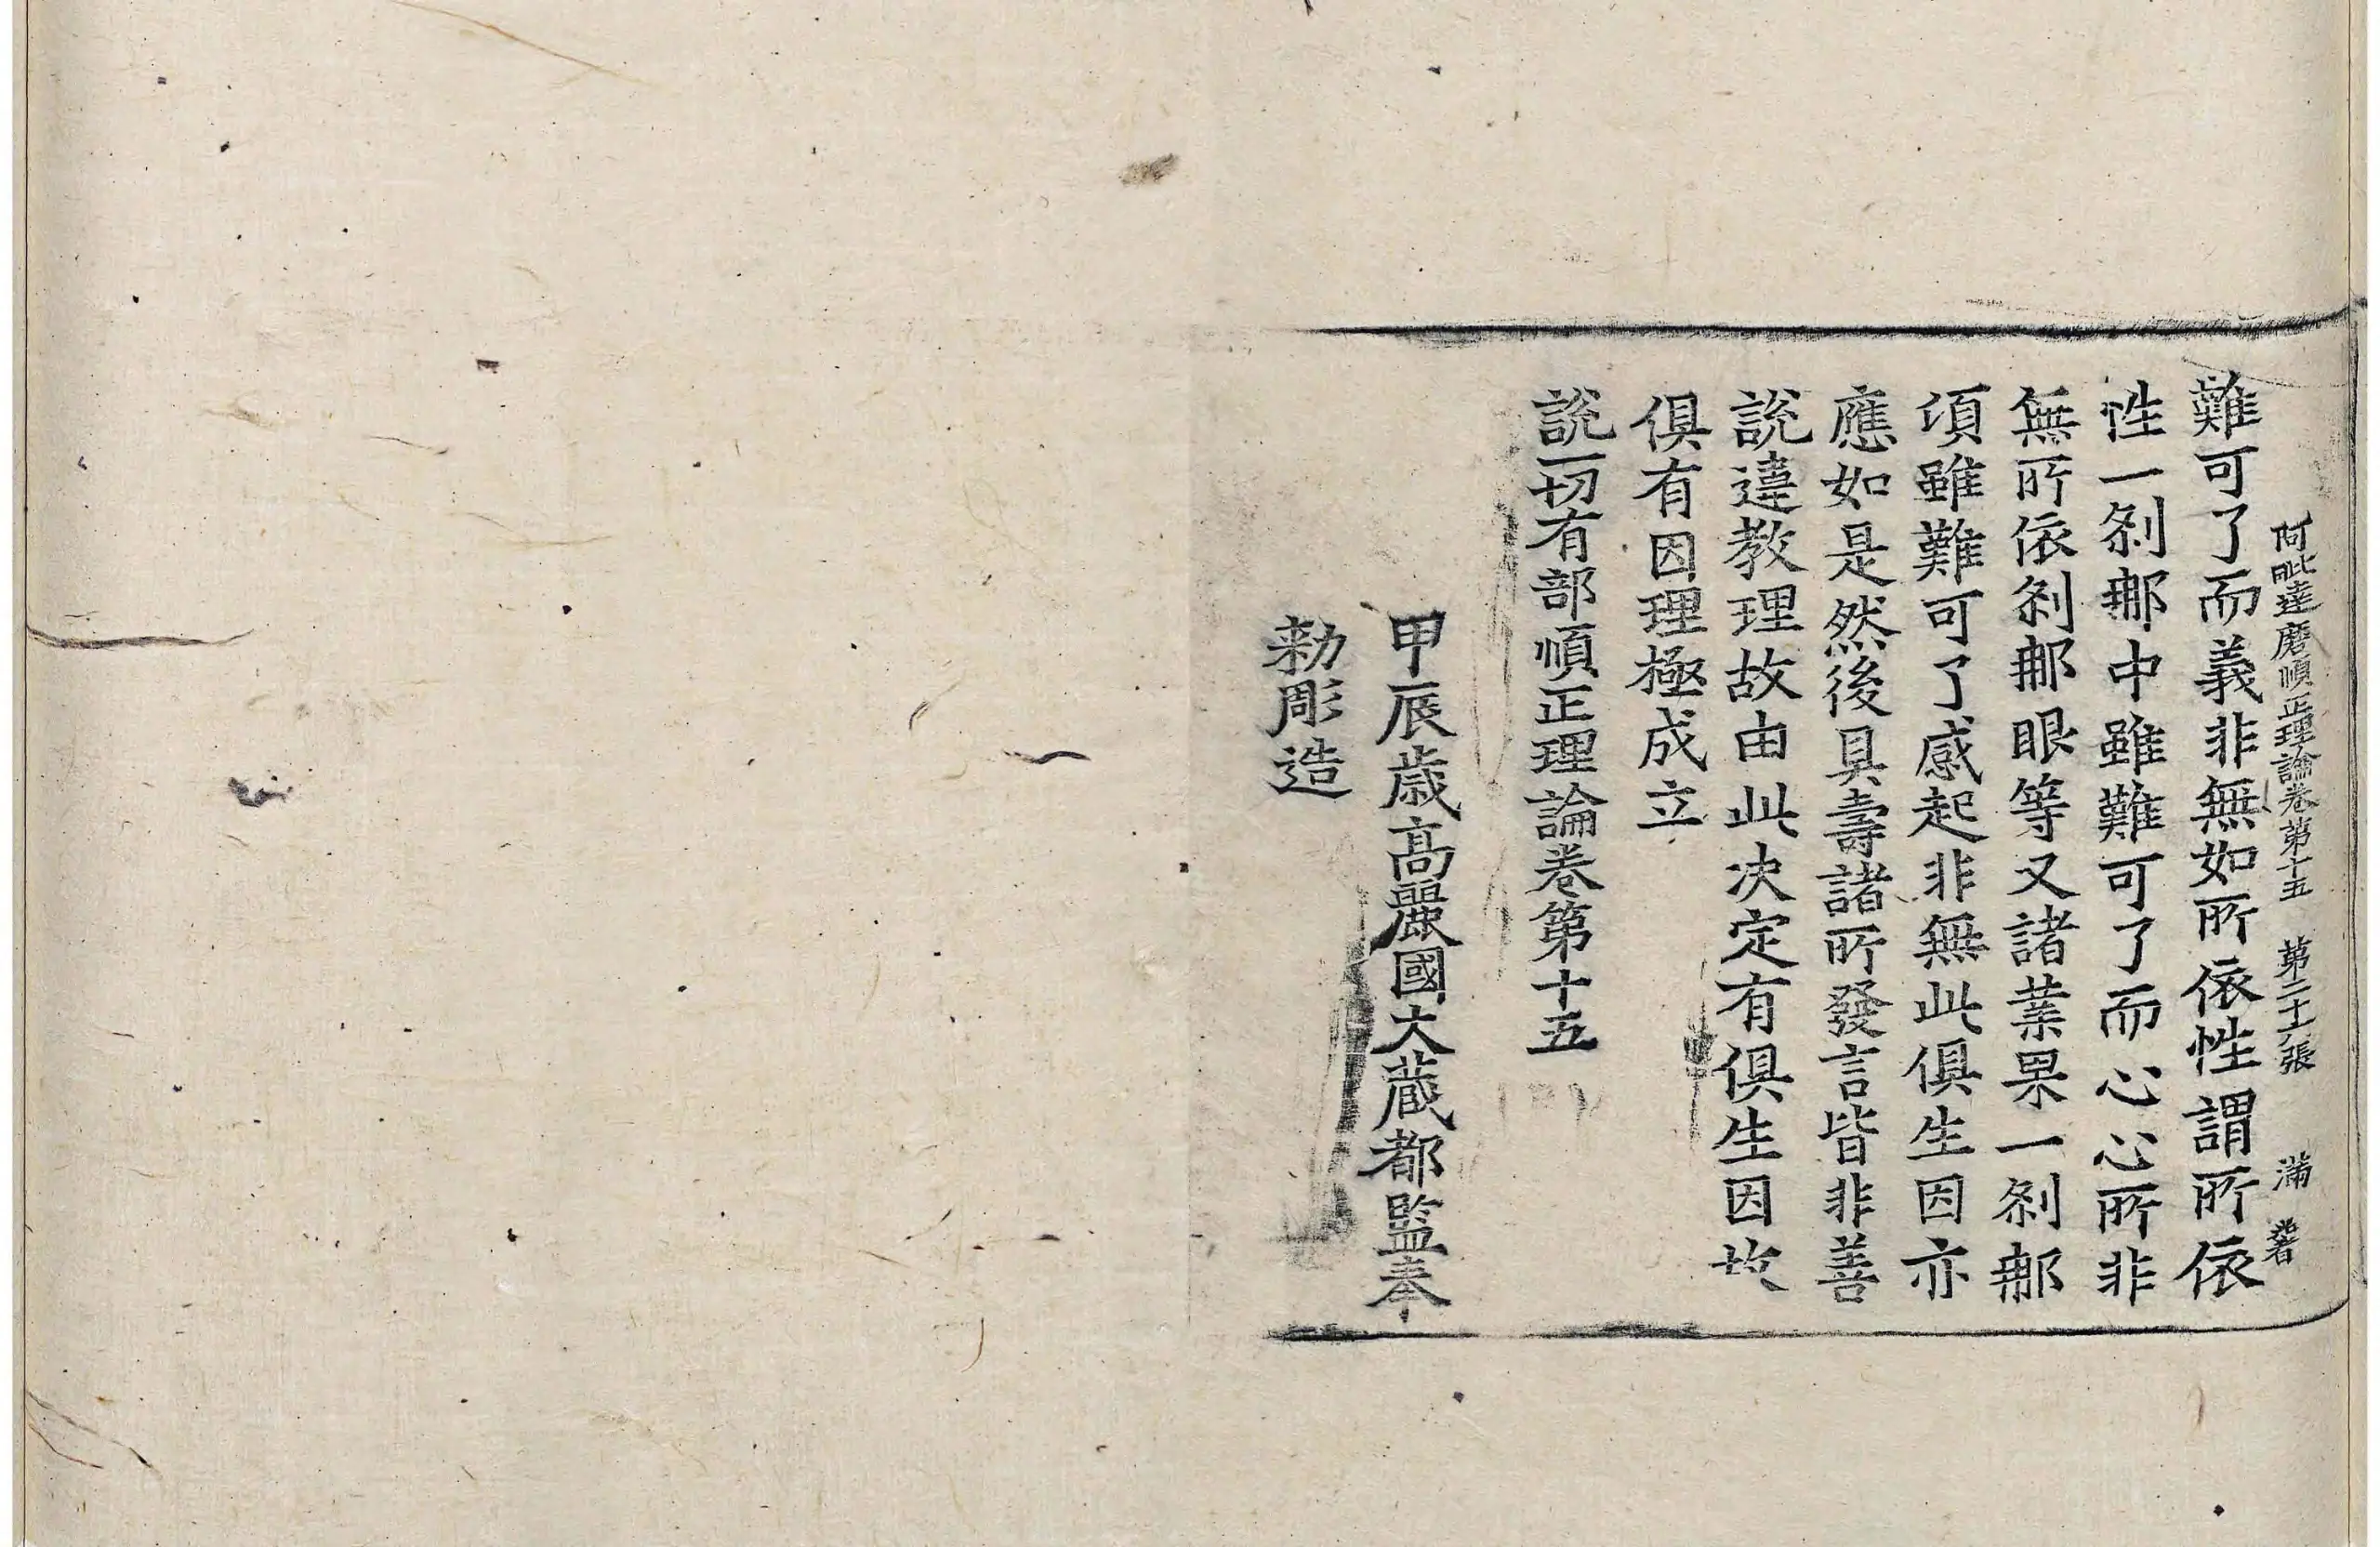 阿毗達磨順正理論卷第十五 第二十六張 滿
難可了而義非無如所依性謂所依
性一剎那中雖難可了而心心所非
無所依剎那眼等又諸業果一剎那
頃雖難可了感起非無此俱生因亦
應如是然後具壽諸所發言皆非善
說違教理故由此決定有俱生因故
俱有因理極成立
說一切有部順正理論卷第十五
甲辰歲高麗國大藏都監奉
勑彫造